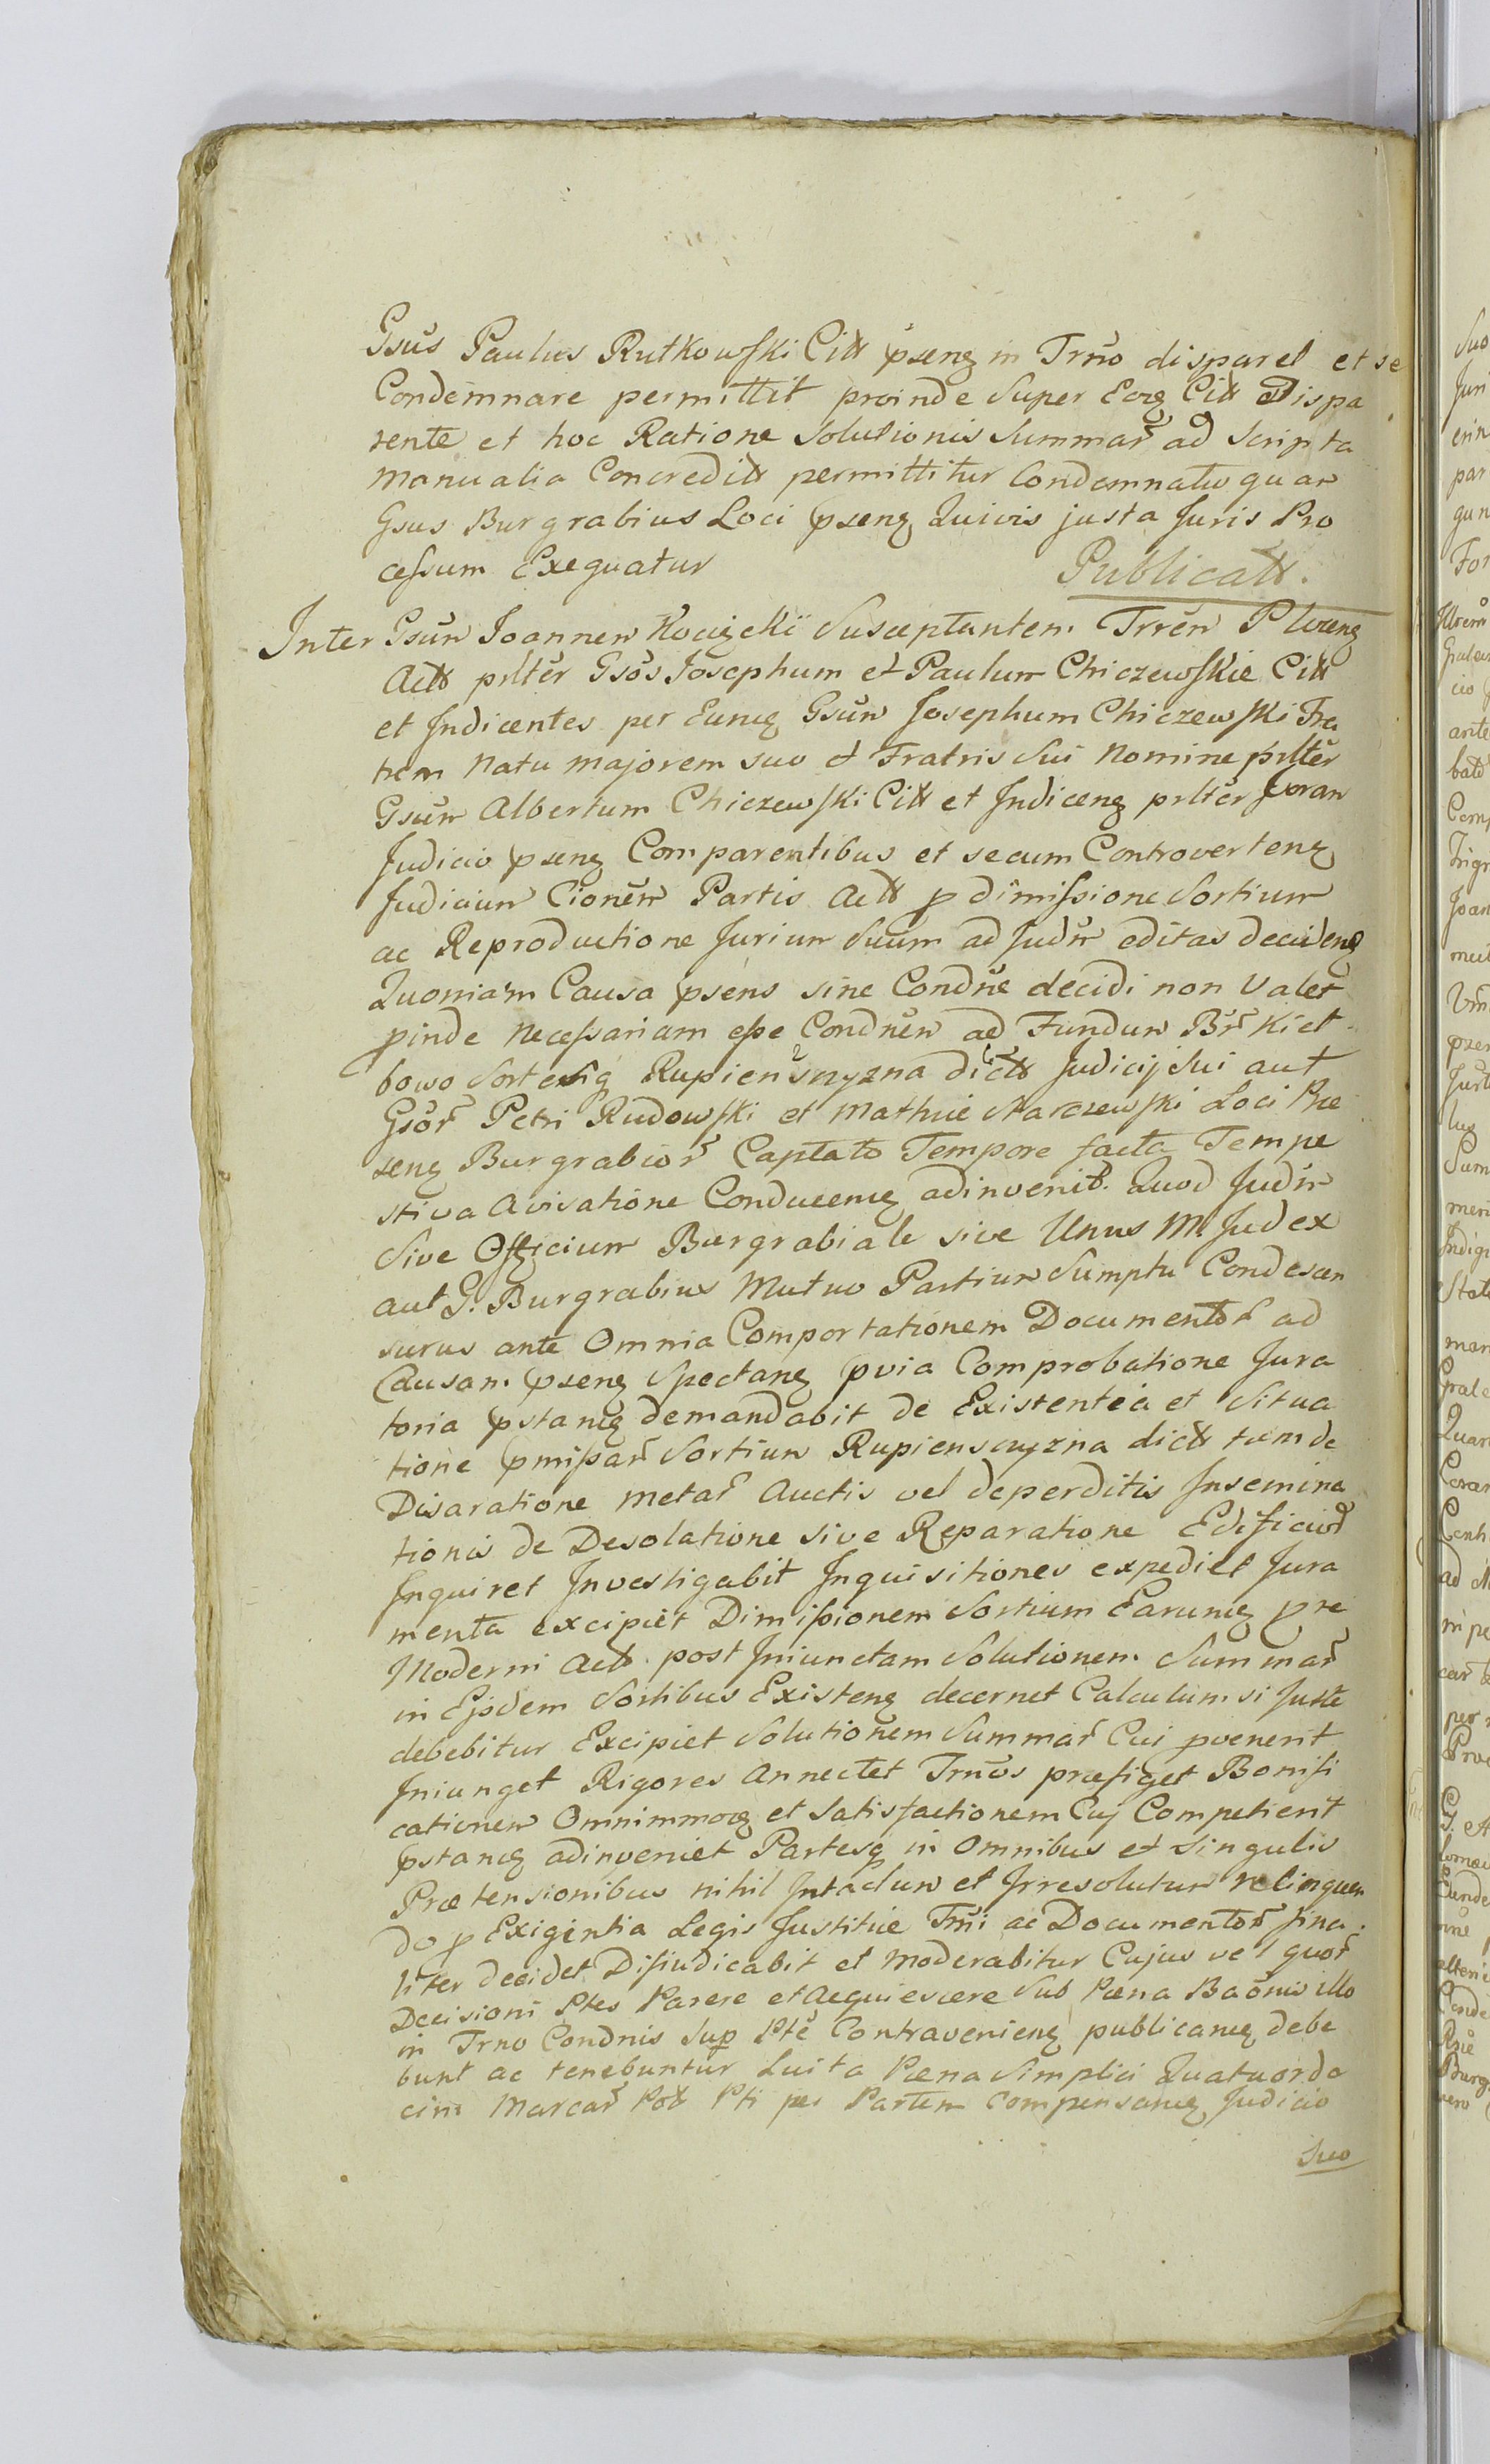 Gsus Paulus Rutkowski Citt psenz in Trno disparet et se
Condemnare permittit proinde Super Eoz Citt dispa
rente et hoc Ratione Solutionis Summar ad Scripta
manualia Concreditt permittitur Condemnatio quan
Gsus Burgrabius Loci psenz Quivis justa Juris Pro
cessum Exequatur Publicatt.
Inter Gsun Joannen Susceptantem Trren
Actt prlter Gsos Josephum et Paulum Chiczewskie Citt
et Indicentes per Eunq Gsun Josephum Chiczewski Fra
trem Natu majorem suo et Fratris Sui Nomine prlter
Gsum Albertum Chiczewski Citt et Indicenz prlter Coran
Judicio psenz Comparentibus et secum Controvertenz
Judicium Cionem Partis Actt p dimissione Sortium
ac Reproductione Jurium Suum ad Judm editas decidenz
Quoniam Causa psens sine Condne decidi non Valet
pinde Necessariam esse Condnen ad Fundum Br Kiet
bowo Sortesq Rupienscyzna dictt Judicij Sui aut
Gsor Petri Rudowski et Mathiæ Narczewski Loci Præ
senz Burgrabior Captato Tempore facta Tempe
stiva Avisatione Conducenq adinvenit. Quod Judm
Sive Officium Burgrabiale sive Unus M. Judex
aut G. Burgrabius Mutuo Partium Sumptu Condescen
surus ante Omnia Comportationem Documentor ad
Causam psenz Spectanz pvia Comprobatione Jura
toria pstanq demandabit de Existentia et Situa
tione pmissar Sortium Rupienscyzna dictt tum de
Disaratione metar Auctis vel deperditis Insemina
tionis de Desolatione sive Reparatione Edificior
Inquiret Investigabit Inquisitiones expediet Jura
menta excipiet Dimissionem Sortium Earunq pre
Moderni Actt post Iniunctam Solutionem Summar
in Ejsdem Sortibus Existenz decernet Calculum si Juste
debebitur Excipiet Solutionem Summar Cui pvenerit
Iniunget Rigores Annectet Trnos præfiget Bonifi
cationem Omnimmoq et Satisfactionem Cuj Competierit
pstanq adinveniet Partesq in Omnibus et Singulis
Prætensionibus nihil Intactum et Irresolutum relinquen
do p Exigentia Legis Justitiæ Trni ac Documentor fina
liter decidet Dijudicabit et Moderabitur Cujus vel quor
Decisioni Ptes Parere et Acquiescere Sub Pæna Baonis illo
in Trno Condnis Sup Pte Contravenienz publicanq debe
bunt ac tenebuntur Luita Pæna Simplici Quatuorde
cim Marcar Pott Pti per Partem Compensanq Judicio
Suo